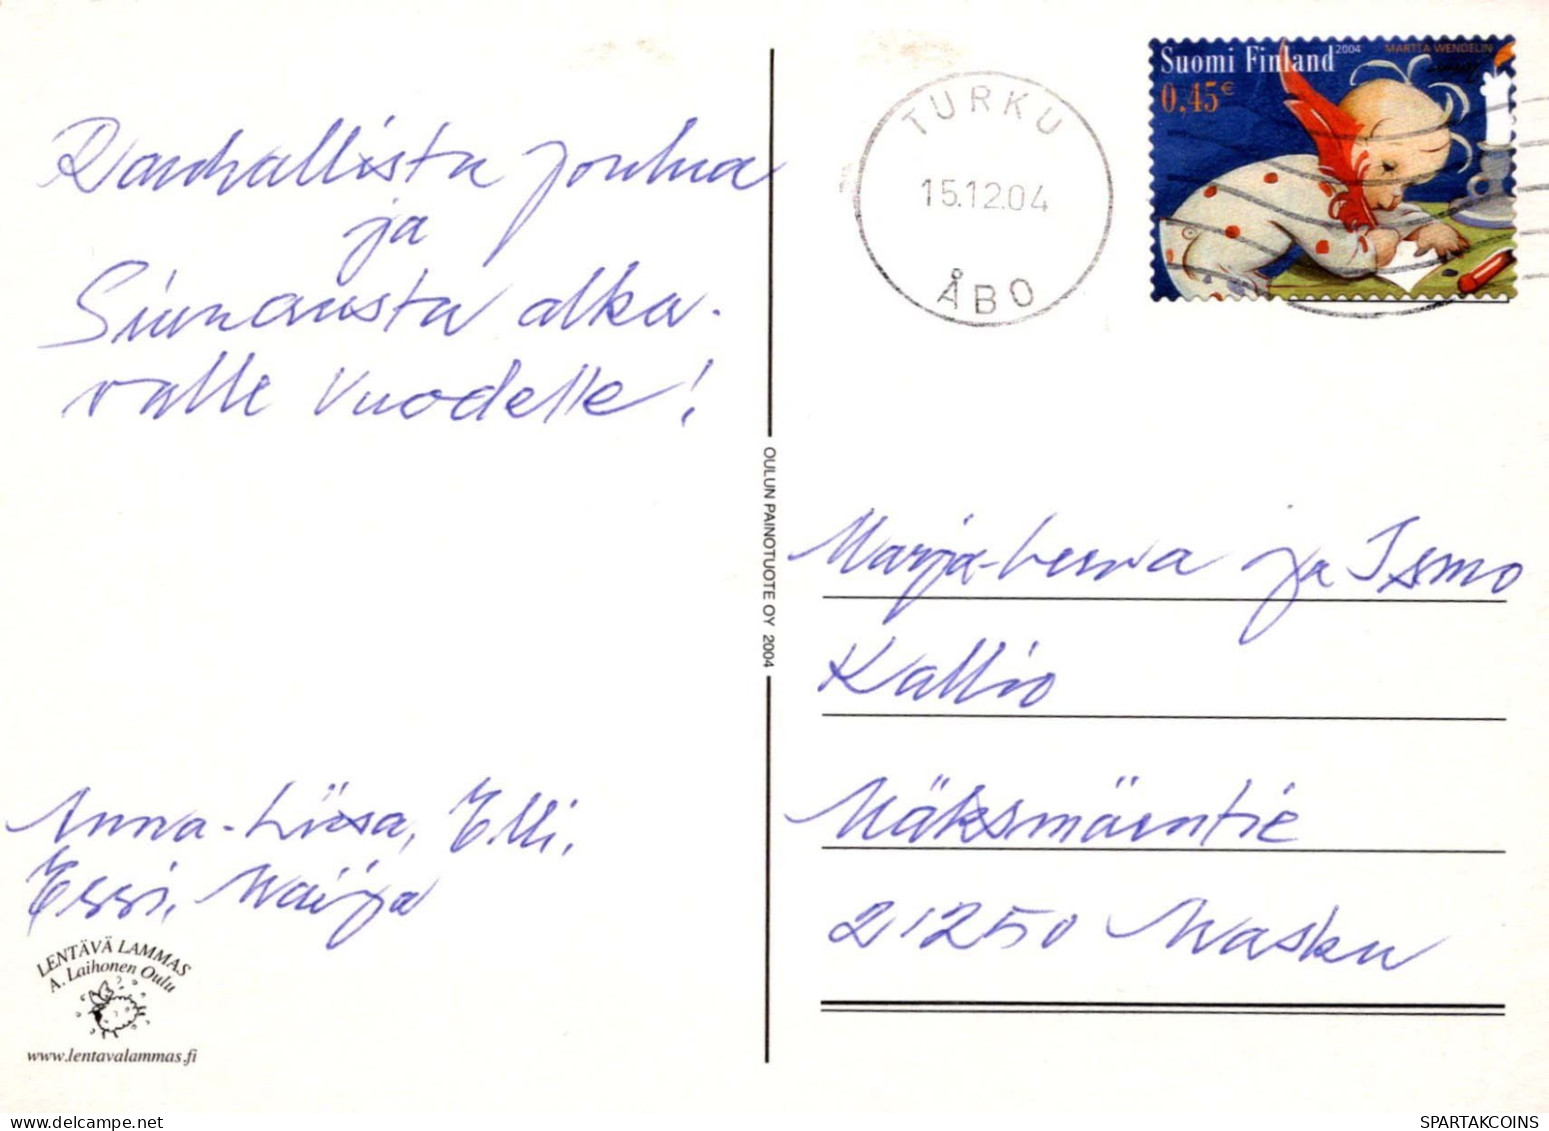 Rauhallista joulua
ja
Siunausta alka-
valle vuodelle!
Anna-Liisa, Elli,
Essi, Maija
LENTÄVÄ LAMMAS
A. Laihonen Oulu
www.lentavalammas.fi
OULUN PAINOTUOTE OY 2004
TURKU
15.12.04
ÅBO
Suomi Finland 2004 MARTTA WENDELIN
0,45€
Marja-Leena ja Ismo
Kallio
Mäksmäentie
21250 Masku
SPARTAKCOINS